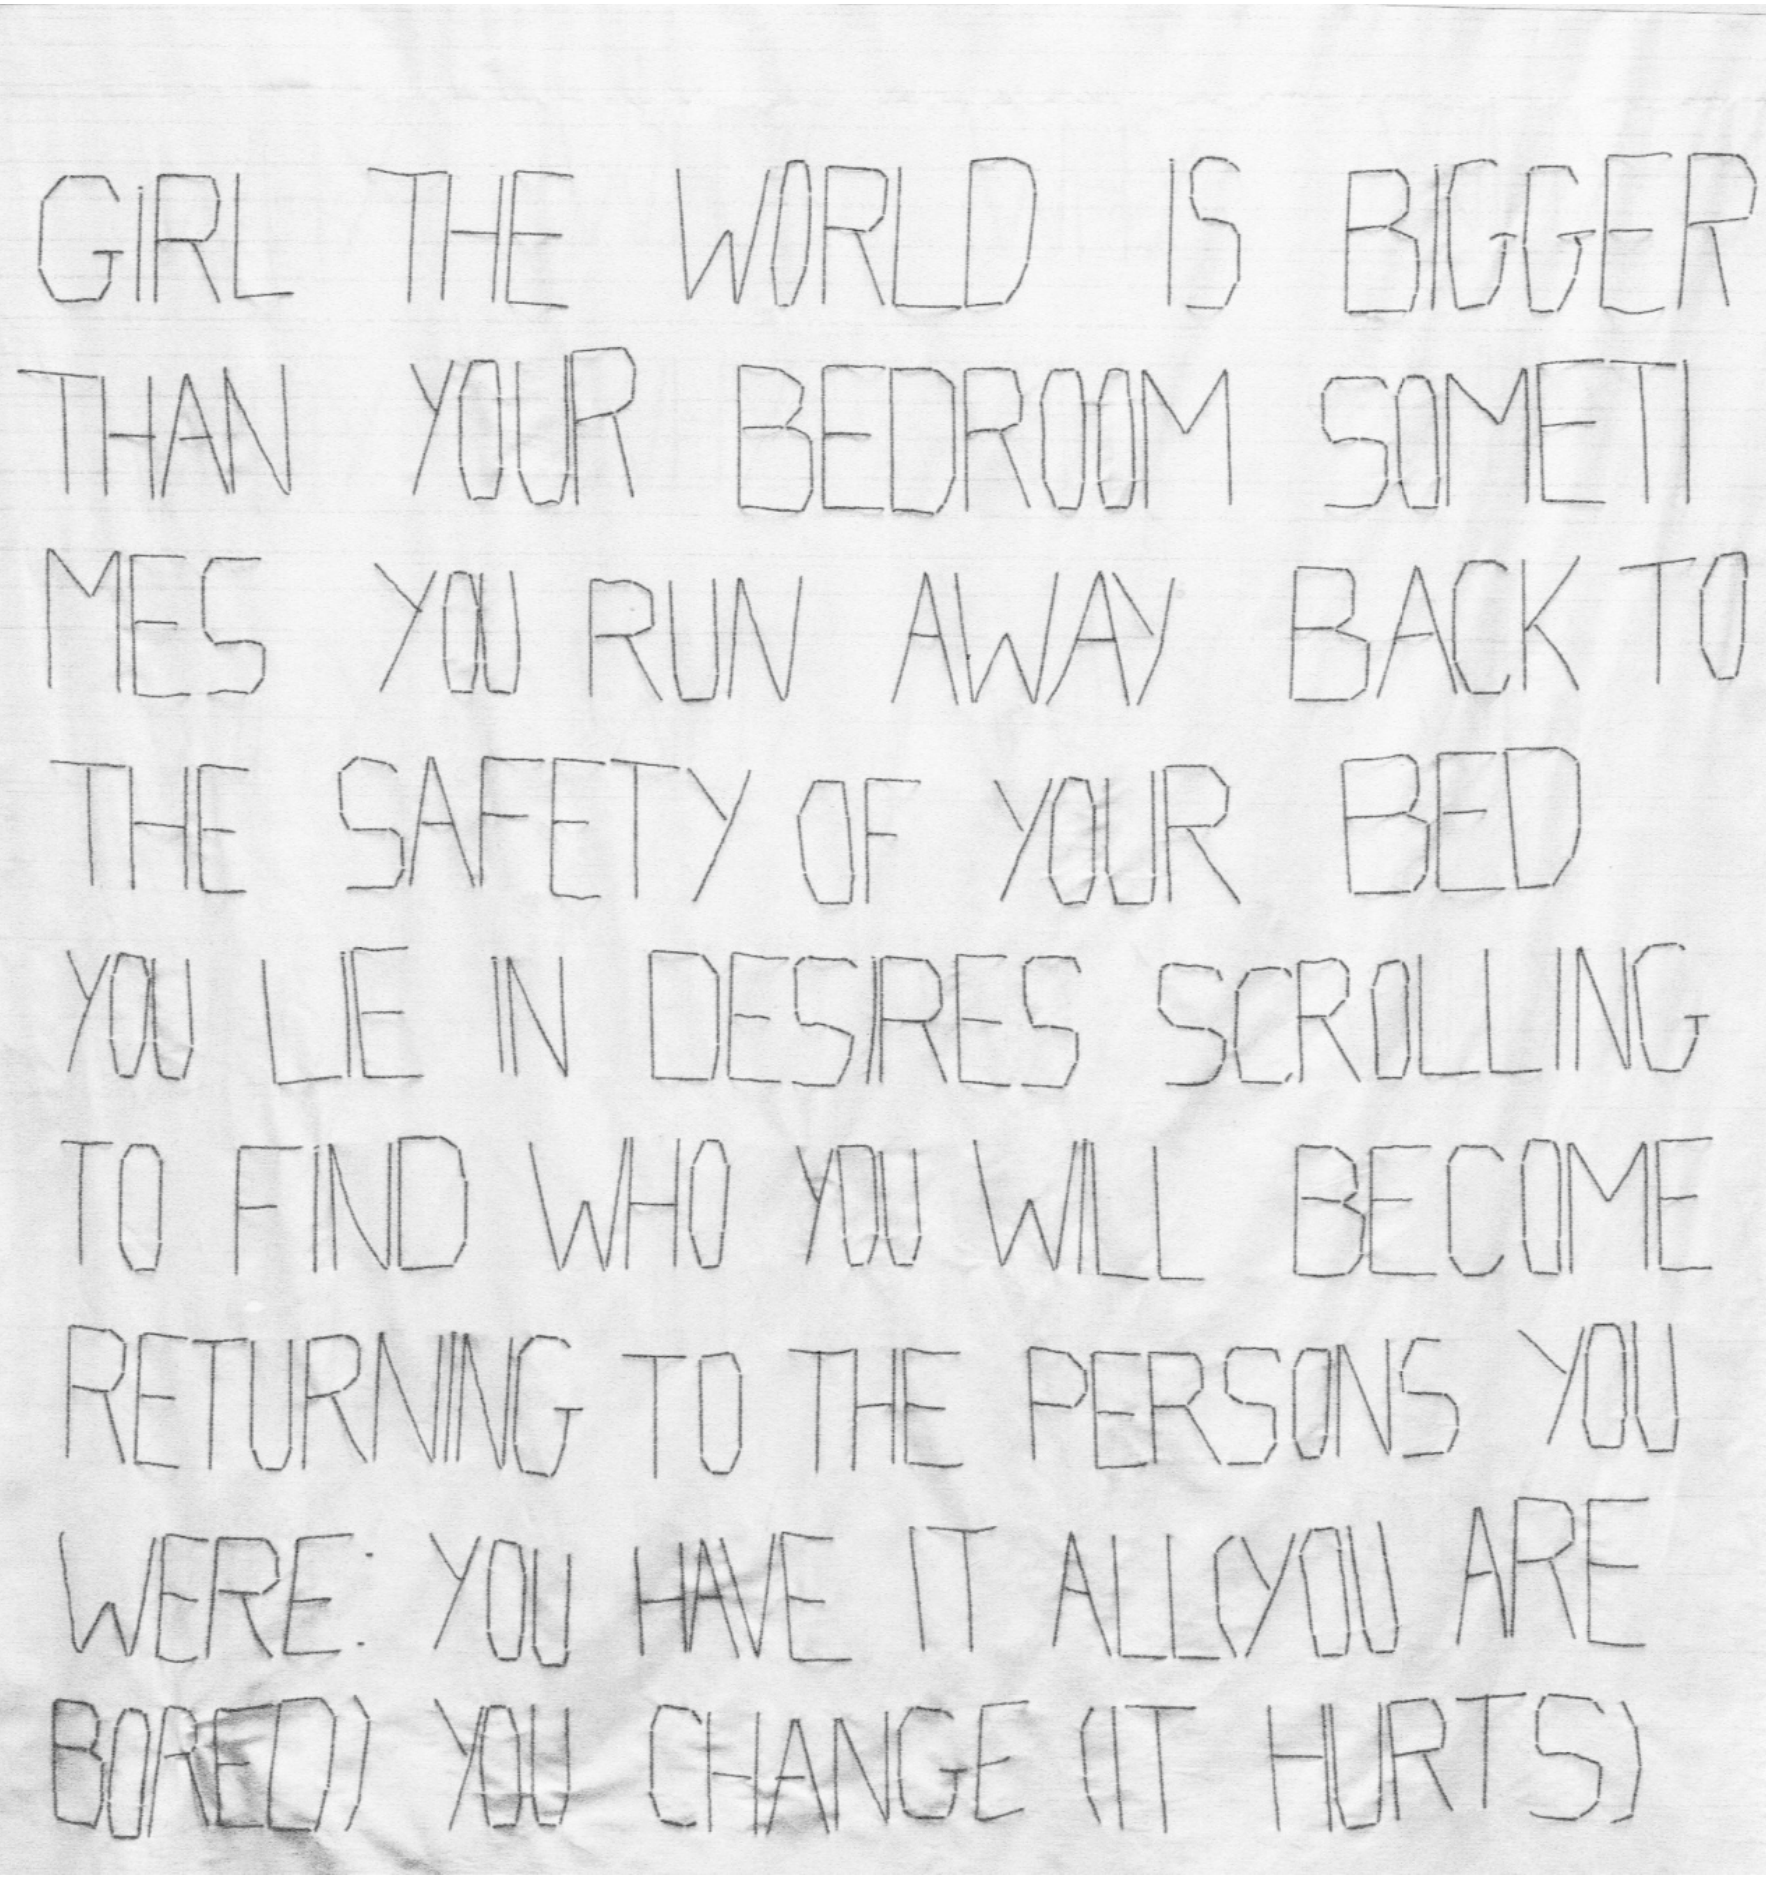 GIRL THE WORLD IS BIGGER
THAN YOUR BEDROOM SOMETI
MES YOU RUN AWAY BACK TO
THE SAFETY OF YOUR BED
YOU LIE IN DESIRES SCROLLING
TO FIND WHO YOU WILL BECOME
RETURNING TO THE PERSONS YOU
WERE: YOU HAVE IT ALL(YOU ARE
BORED) YOU CHANGE (IT HURTS)